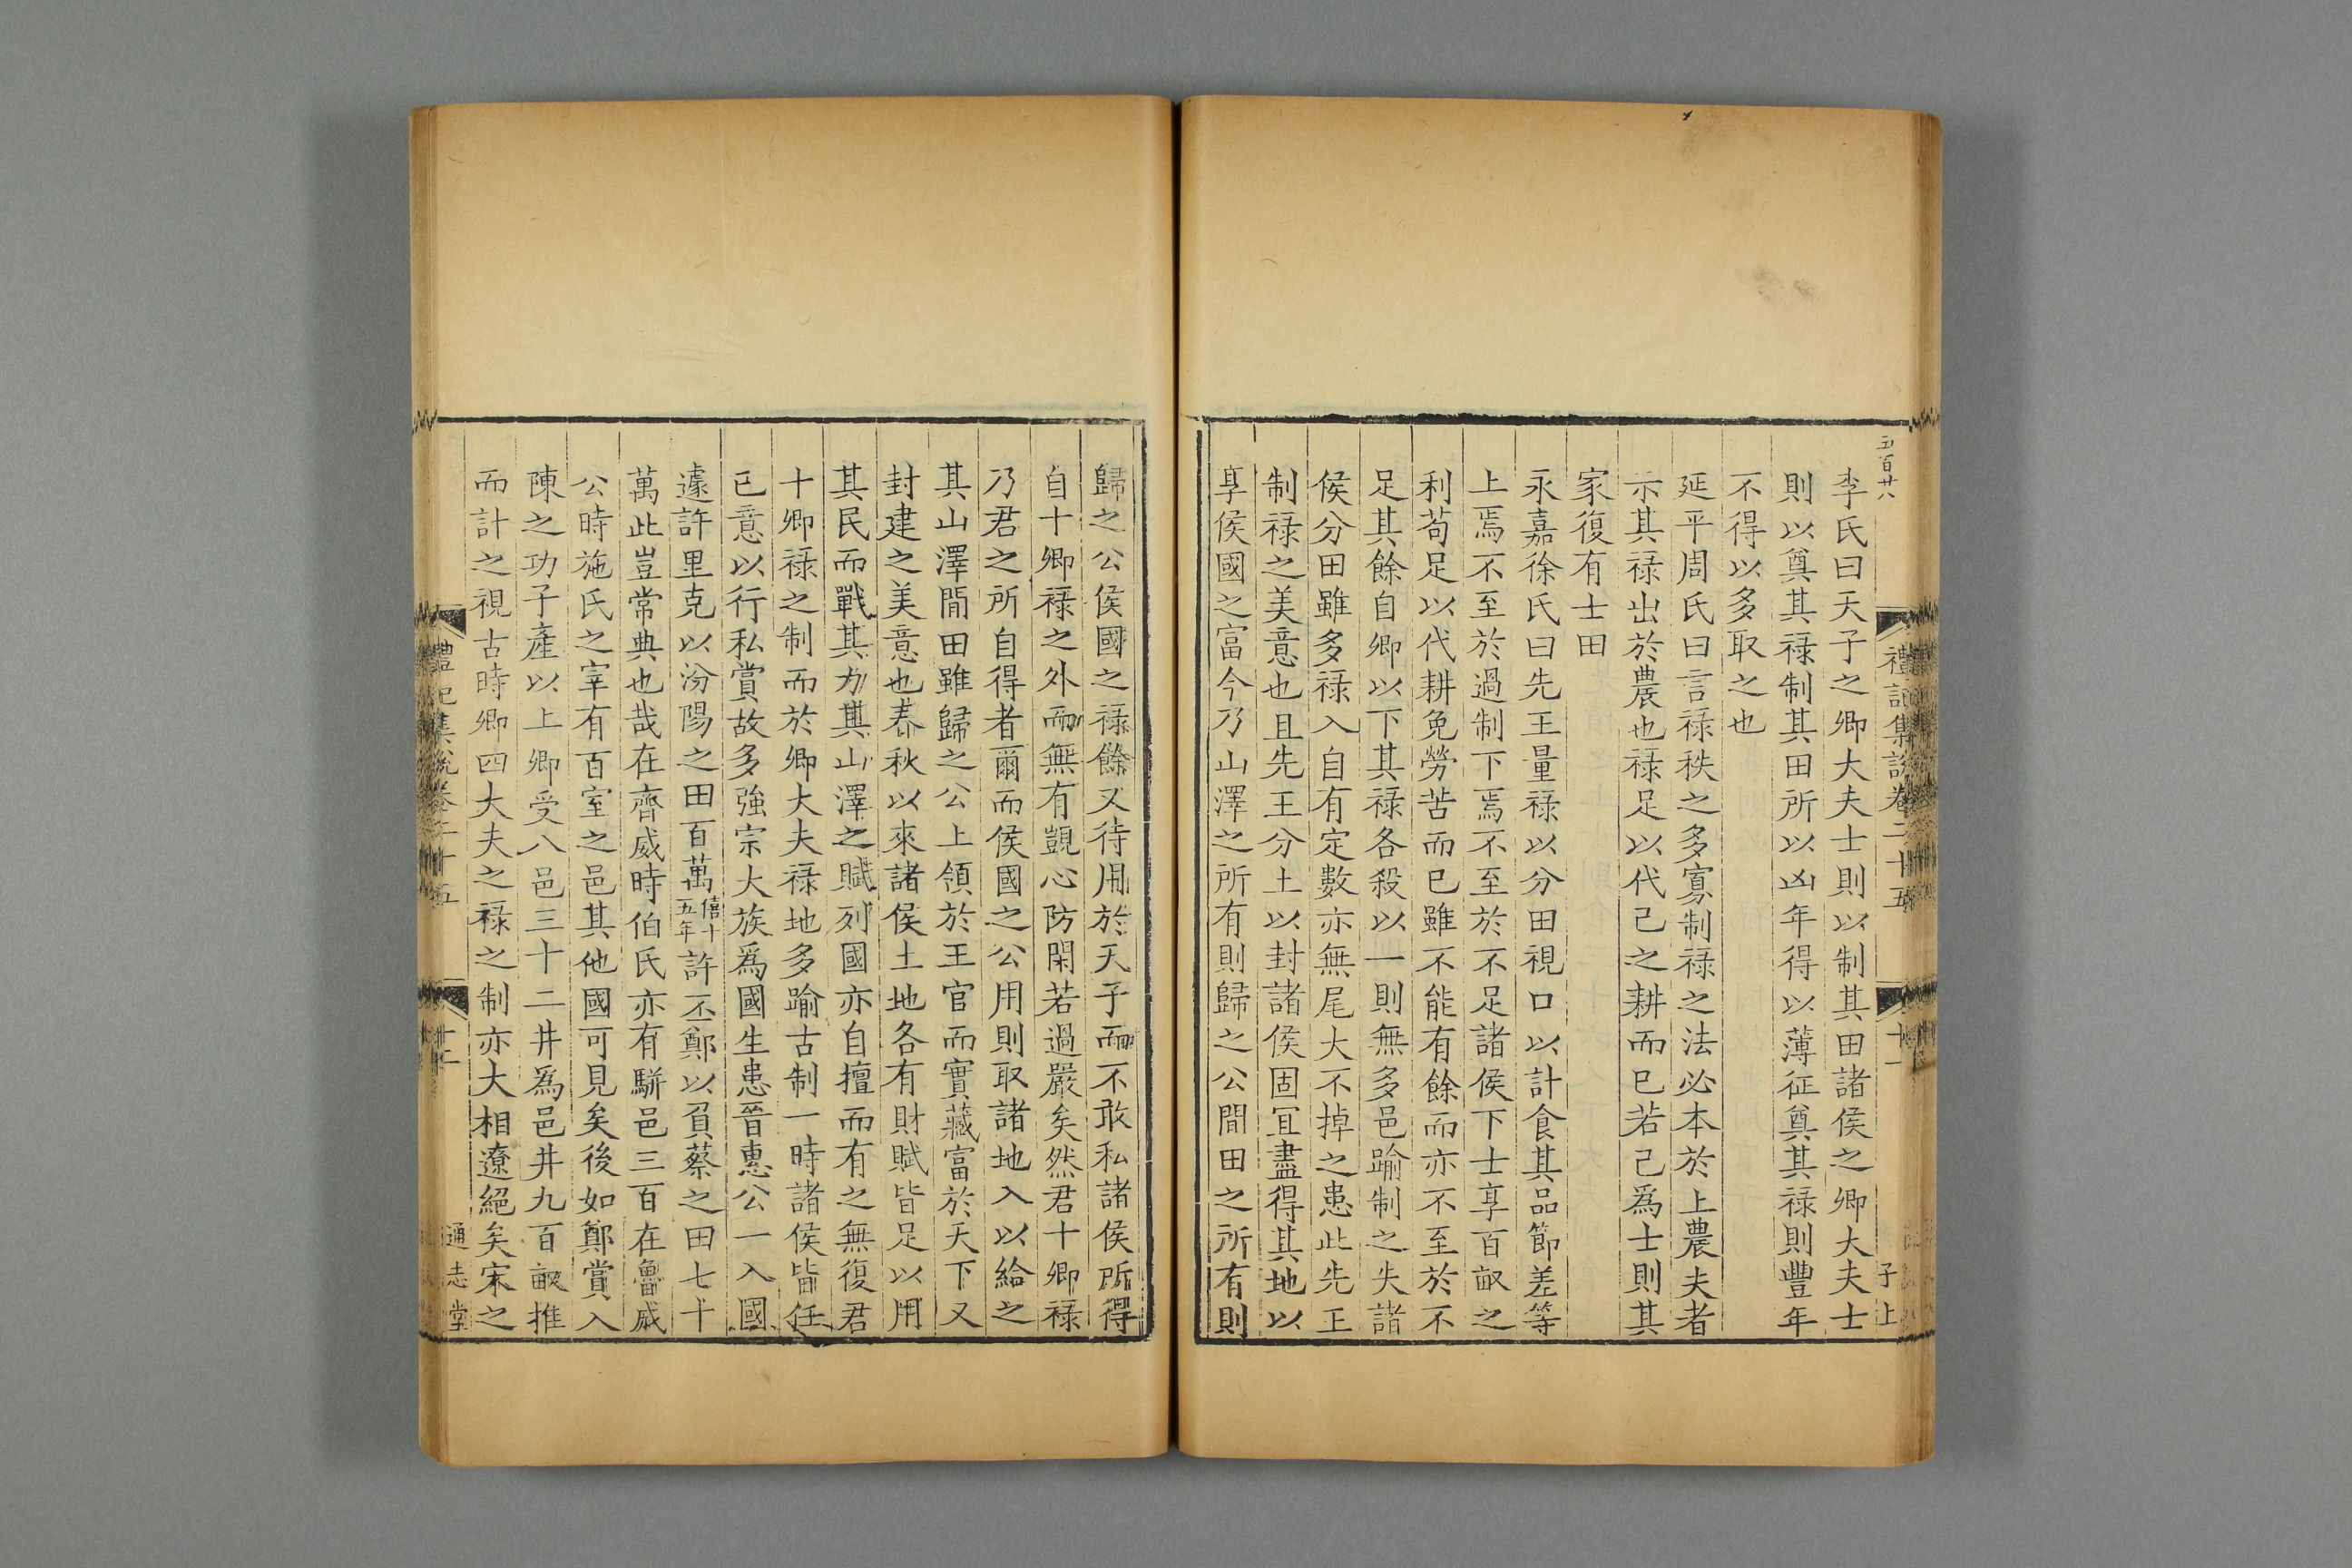 五百廿八
禮記集說卷二十五
十一
子上
李氏曰天子之卿大夫士則以制其田諸侯之卿大夫士
則以奠其祿制其田所以凶年得以薄征奠其祿則豐年
不得以多取之也
延平周氏曰言祿秩之多寡制祿之法必本於上農夫者
示其祿出於農也祿足以代己之耕而已若己爲士則其
家復有士田
永嘉徐氏曰先王量祿以分田視口以計食其品節差等
上焉不至於過制下焉不至於不足諸侯下士享百畝之
利苟足以代耕免勞苦而已雖不能有餘而亦不至於不
足其餘自卿以下其祿各殺以一則無多邑踰制之失諸
侯分田雖多祿入自有定數亦無尾大不掉之患此先王
制祿之美意也且先王分土以封諸侯固宜盡得其地以
享侯國之富今乃山澤之所有則歸之公間田之所有則
歸之公侯國之祿餘又待用於天子而不敢私諸侯所得
自十卿祿之外而無有覬心防閑若過嚴矣然君十卿祿
乃君之所自得者爾而侯國之公用則取諸地入以給之
其山澤間田雖歸之公上領於王官而實藏富於天下又
封建之美意也春秋以來諸侯土地各有財賦皆足以用
其民而戰其力其山澤之賦列國亦自擅而有之無復君
十卿祿之制而於卿大夫祿地多踰古制一時諸侯皆任
已意以行私賞故多強宗大族爲國生患晉惠公一入國
遽許里克以汾陽之田百萬僖十五年許丕鄭以負蔡之田七十
萬此豈常典也哉在齊威時伯氏亦有駢邑三百在魯威
公時施氏之宰有百室之邑其他國可見矣後如鄭賞入
陳之功子產以上卿受八邑三十二井爲邑井九百畝推
而計之視古時卿四大夫之祿之制亦大相遼絕矣宋之
禮記集說卷二十五
十一
通志堂